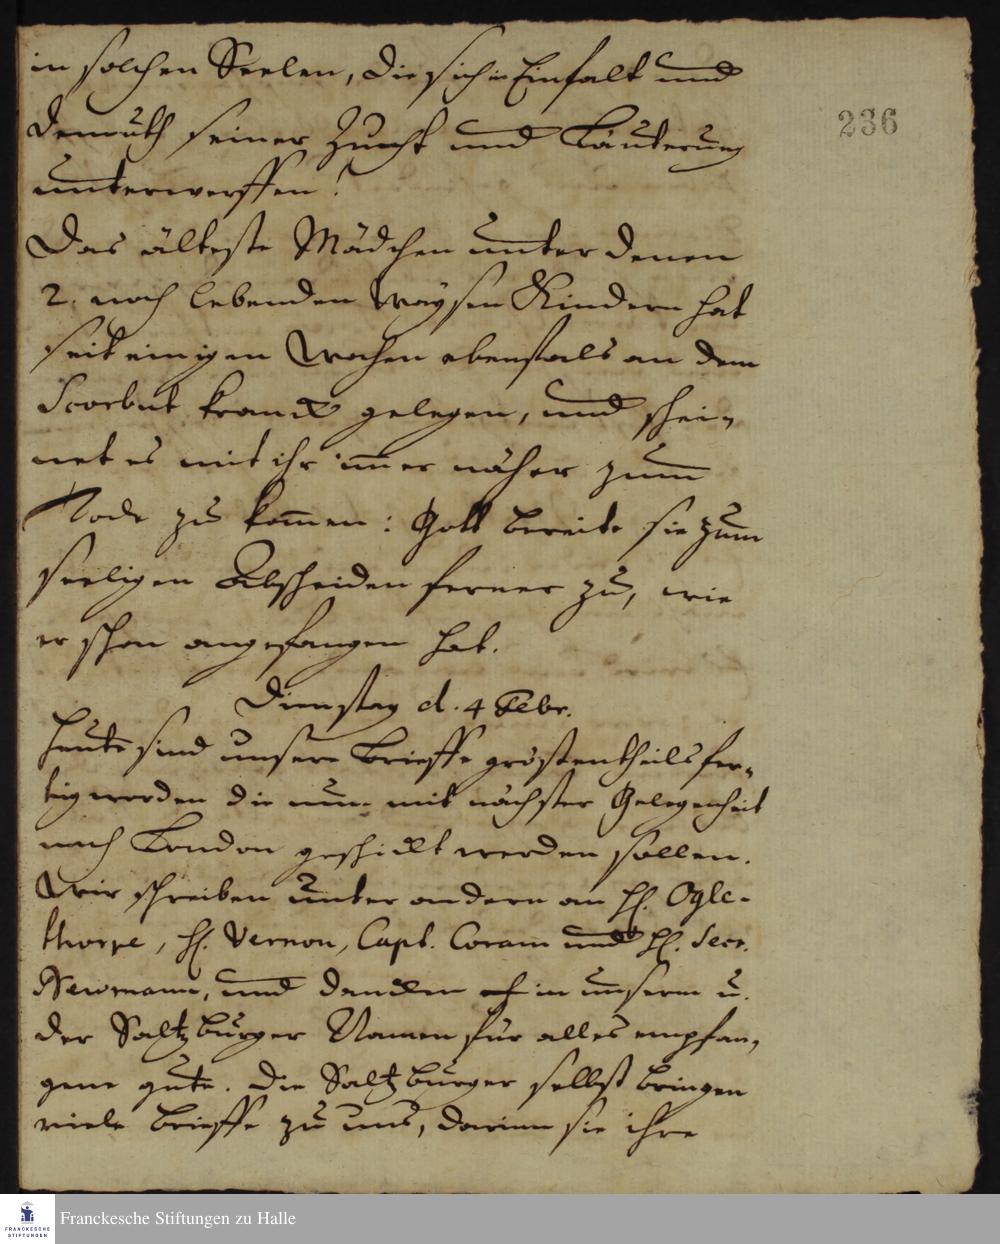 in solchen Seelen, die sich in Einfalt und
236
Demuth seiner Zucht und Läuterung
unterwerffen!
Das älteste Mädchen unter denen
2. noch lebenden Waysen Kindern hat
seit einigen Wochen ebenfals an dem
Scorbut kranck gelegen, und schei-
net es mit ihr im̄er näher zum
Tode zu kom̄en: Gott bereite sie zum
seeligen Abscheiden ferner zu, wie
er schon angefangen hat.
Dienstag d. 4 Febr.
Heute sind unsere Brieffe gröstentheils fer-
tig worden die nun mit nächster Gelegenheit
nach London geschickt werden sollen.
Wir schreiben unter andern an H. Ogle-
thorpe, H. Vernon, Capt. Coram und H. Secr.
Newmann, und dancken in unserm u.
der Saltzburger Namen für alles empfan-
gene gute. Die Saltzburger selbst bringen
viele Brieffe zu uns, darinn sie ihre
FRANCKESCHE
STIFTUNGEN
Franckesche Stiftungen zu Halle